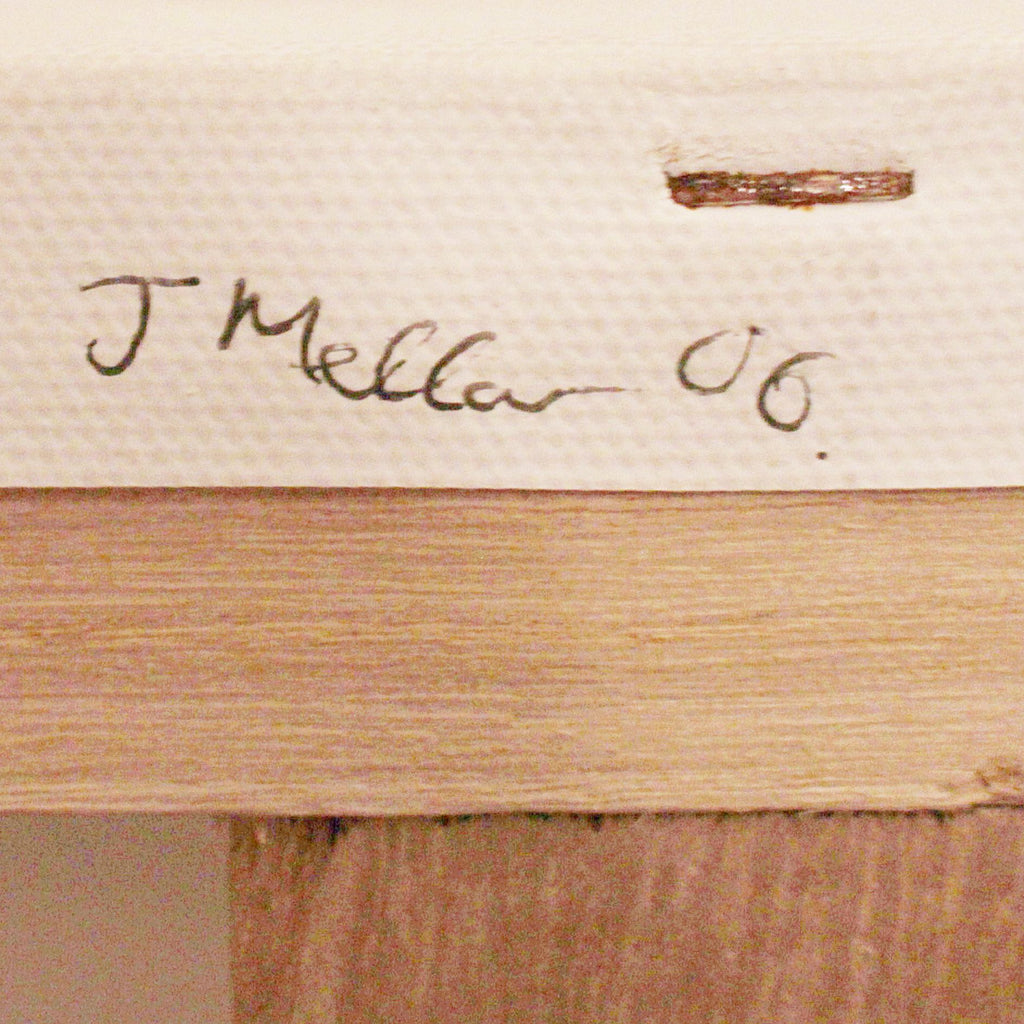 J Mellor 06.